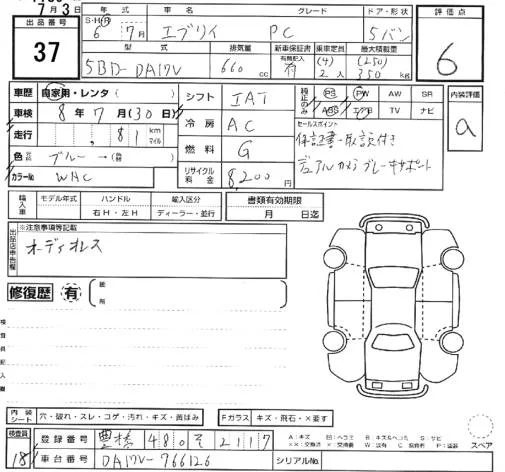 7月3日
出品番号
37
年式 車名 グレード ドア・形状
S・H・R 6年 7月 エブリイ PC 5バン
型式 排気量 新車保証書 乗車定員 最大積載量
有 (4) (250)
5BD-DA17V 660 cc 有 2人 350 kg
評価点
6
車歴 自家用・レンタ( )
車検 8年7月(30日)
走行 , 81 km マイル
色 ブルー→(替)
カラーNo WHC
シフト IAT
冷房 AC
燃料 G
リサイクル料金 8,200円
純正のみ PS PW AW SR
ABS エアB TV ナビ
セールスポイント
保証書・取説付き
デュアルカメラブレーキサポート
内装評価
a
輸入車 モデル年式 ハンドル 輸入区分
年 右H・左H ディーラー・並行
書類有効期限
月 日迄
出品店申告欄
※注意事項等記載
オーディオレス
修復歴 有 箇所
検査員記入欄
内装シート 穴・破れ・スレ・コゲ・汚れ・キズ・黄ばみ
Fガラス キズ・飛石・×要す
検査員 18
登録番号 豊橋 480 そ 2117
車台番号 DA17V-966126
シリアルNo.
A:キズ 凹:ヘコミ B:キズ&ヘコミ S:サビ
××:交換済 ×:交換要 W:波有 C:腐食有 P:塗装
スペア